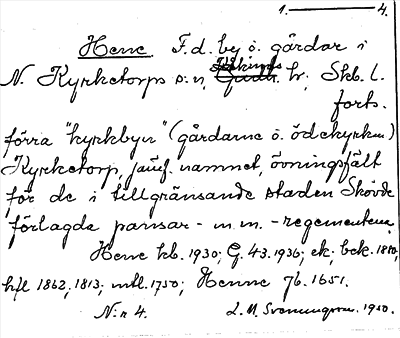 1. — 4.
Hene F.d. by o. gårdar i
N. Kyrketorps s:n, Kåkinds hr, Skb. l.
forts.
förra "kyrkbyn" (gårdarne o. ödekyrkan)
Kyrketorp, jämf. namnet, övningsfält
för de i tillgränsande staden Skövde
förlagda pansar- m.m. -regementena
Hene kb. 1930; G. 43. 1936; ek; bek. 1880;
hfl 1862; 1813; mtl. 1750; Henne jb. 1651.
N:r 4.